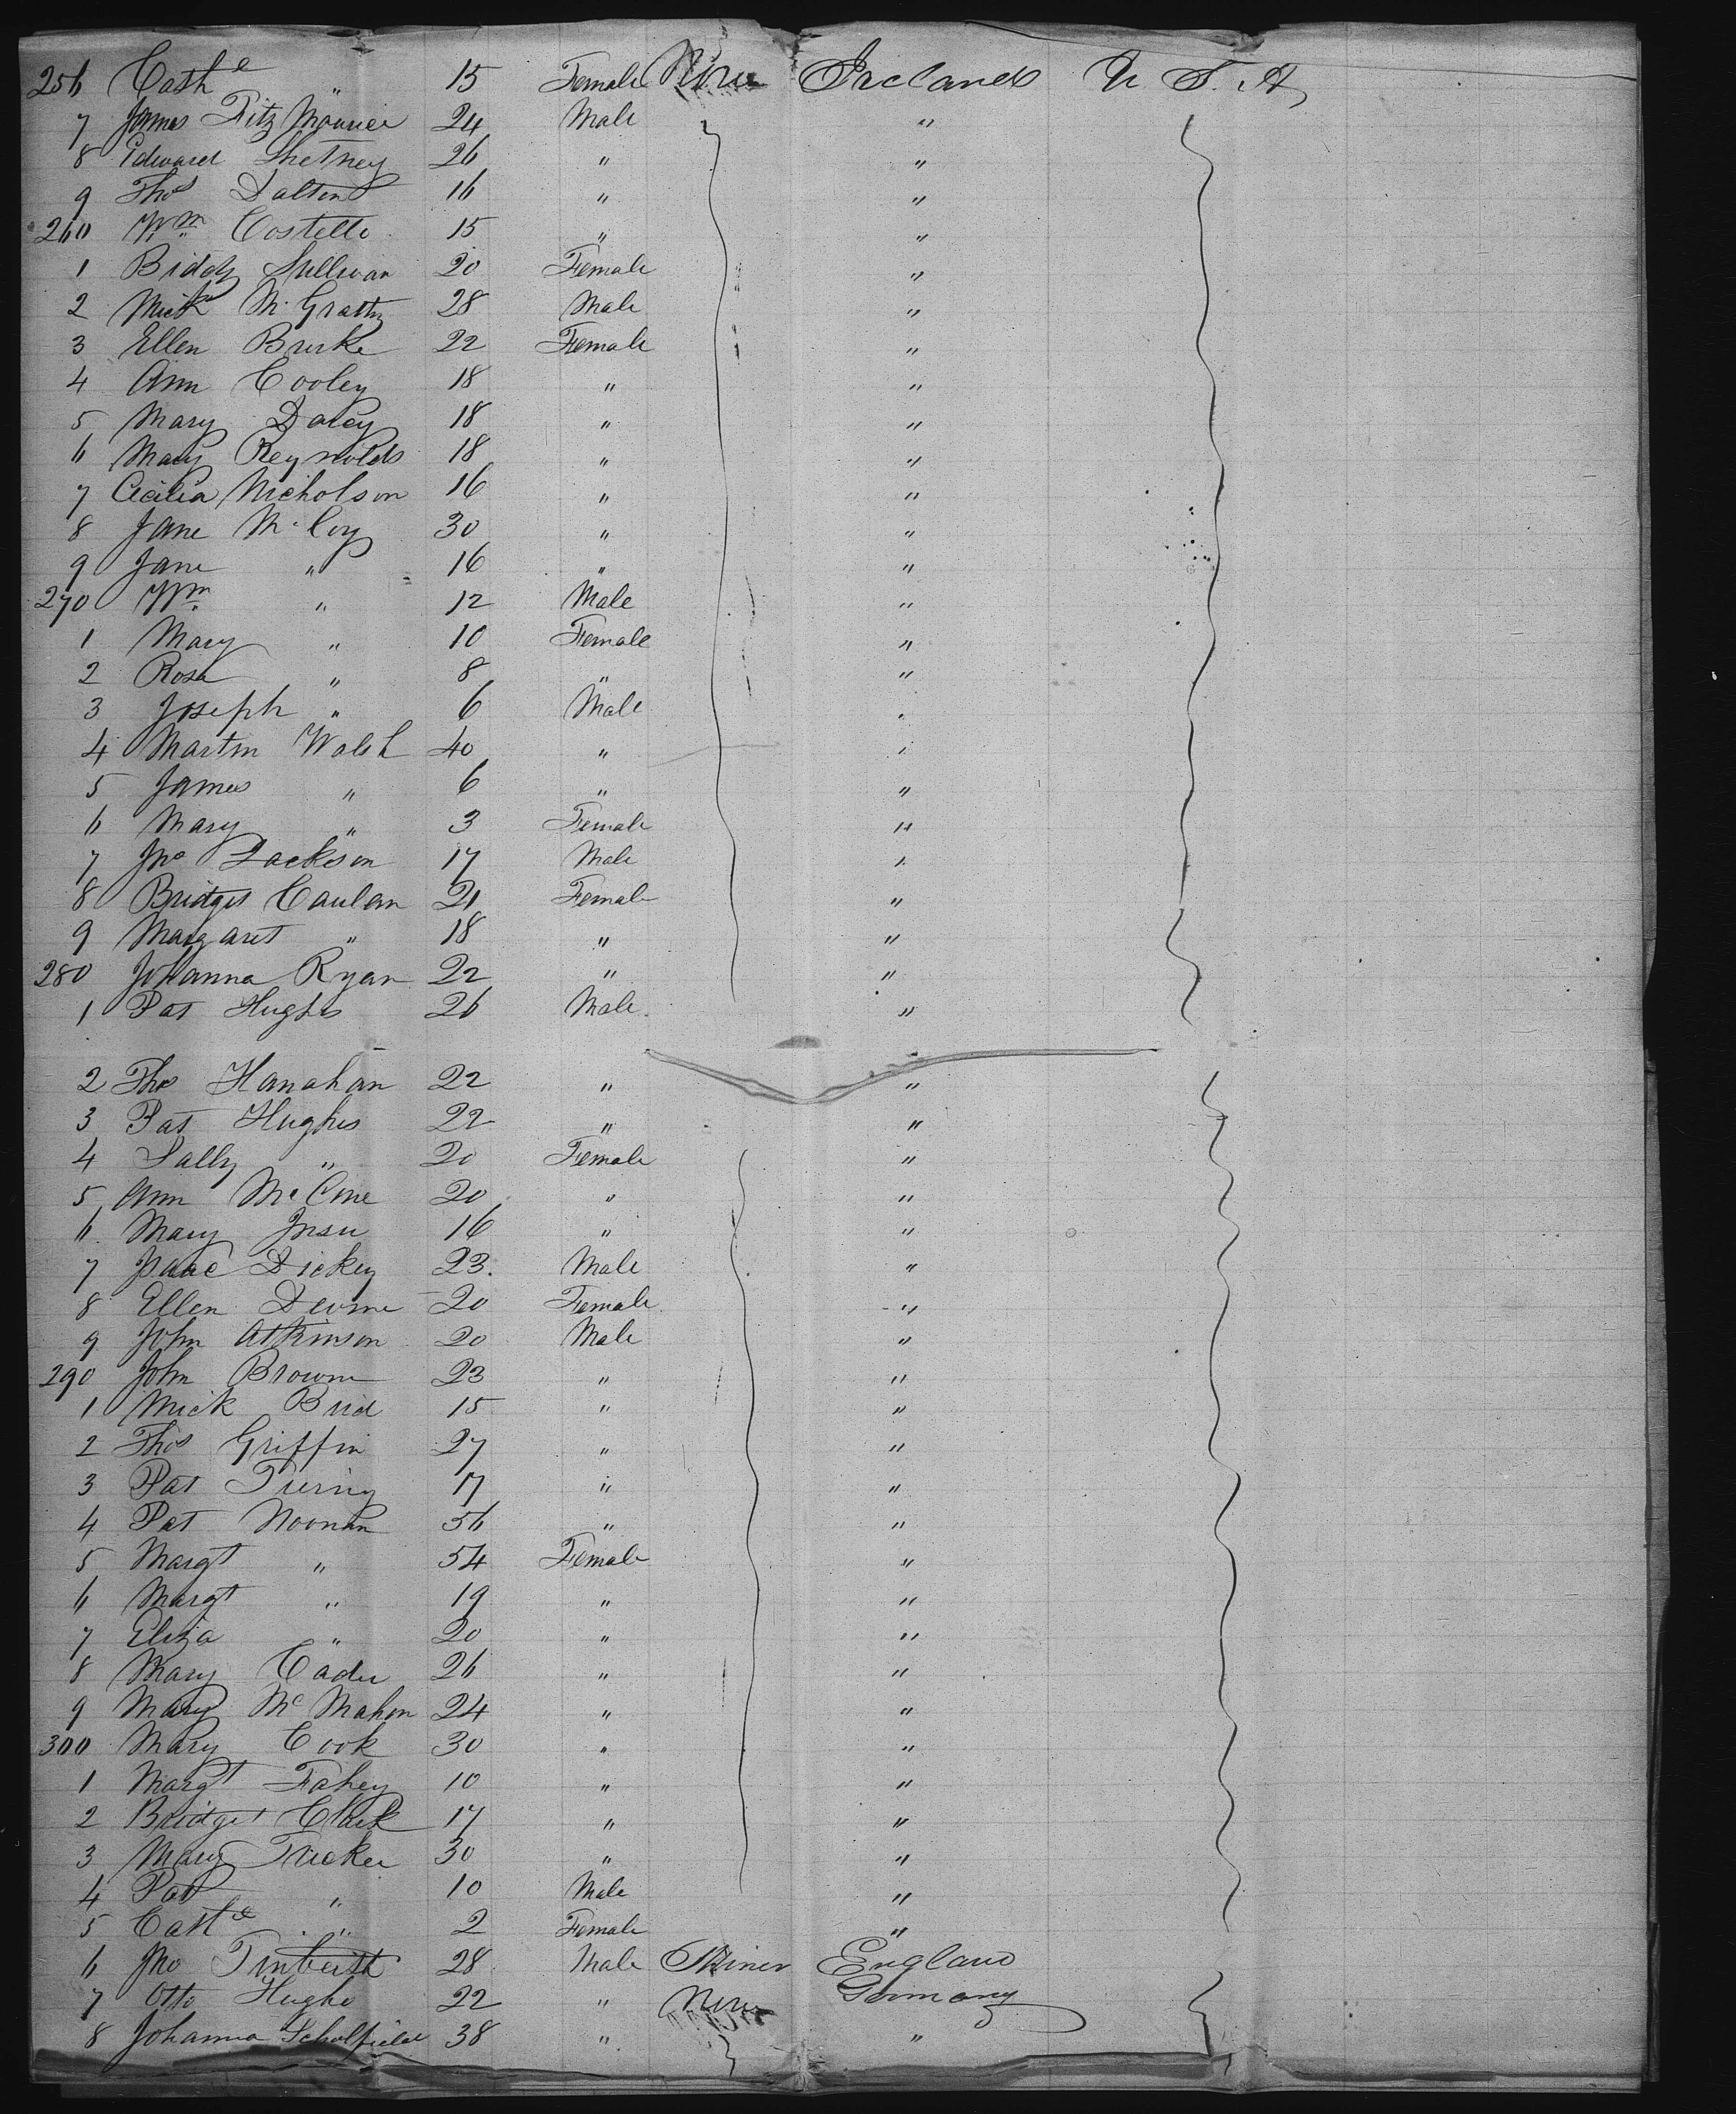 256 Cathe " 15 Female None Ireland U. S. A
7 James Fitz Maurice 24 Male "
8 Edward 26 " "
9 Thos Dalton 16 " "
260 Wm Costello 15 " "
1 Biddy Sullivan 20 Female "
2 Mick McGrath 28 Male "
3 Ellen Burke 22 Female "
4 Ann Cooley 18 " "
5 Mary Daley 18 " "
6 Mary Reynolds 18 " "
7 Cecilia Nicholson 16 " "
8 Jane McCoy 30 " "
9 Jane " 16 " "
270 Wm " 12 Male "
1 Mary " 10 Female "
2 Rosa " 8 " "
3 Joseph " 6 Male "
4 Martin Walsh 40 " "
5 James " 6 " "
6 Mary " 3 Female "
7 Jno Jackson 17 Male "
8 Bridget Caulan 21 Female "
9 Margaret " 18 " "
280 Johanna Ryan 22 " "
1 Pat Hughes 26 Male "
2 Thos Hanahan 22 " "
3 Pat Hughes 22 " "
4 Sally " 20 Female "
5 Ann 20 " "
6 Mary 16 " "
7 Isaac Dickey 23 Male "
8 Ellen Devine 20 Female "
9 John Atkinson 20 Male "
290 John Brown 23 " "
1 Mick 15 " "
2 Thos Griffin 27 " "
3 Pat 17 " "
4 Pat Noonan 56 " "
5 Margt " 54 Female "
6 Margt " 19 " "
7 Eliza " 20 " "
8 Mary 26 " "
9 Mary McMahon 24 " "
300 Mary Cook 30 " "
1 Margt Fahey 10 " "
2 Bridget Clark 17 " "
3 Mary Tucker 30 " "
4 Pat " 10 Male "
5 Cathe " 2 Female "
6 Jno 28 Male Miner England
7 Otto Hughe 22 " None Germany
8 Johanna Scholfield 38 " "